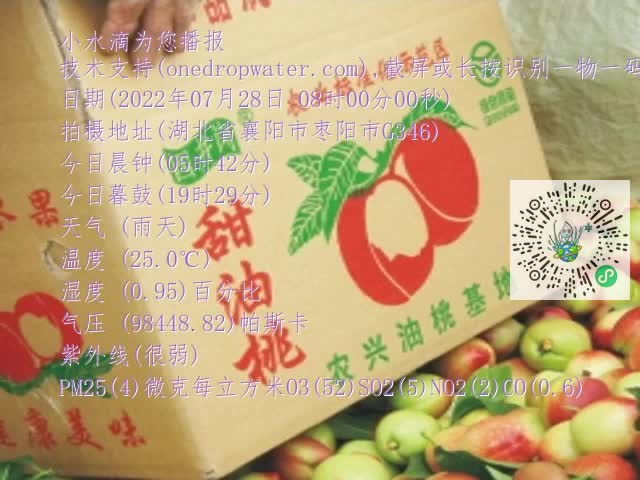 小水滴为您播报
技术支持(onedropwater.com),截屏或长按识别一物一码
日期(2022年07月28日 08时00分00秒)
拍摄地址(湖北省襄阳市枣阳市G346)
今日晨钟(05时42分)
今日暮鼓(19时29分)
天气 (雨天)
温度 (25.0℃)
湿度 (0.95)百分比
气压 (98448.82)帕斯卡
紫外线(很弱)
PM25(4)微克每立方米O3(52)SO2(5)NO2(2)CO(0.6)
甜油桃
农兴油桃基地
水果
健康美味